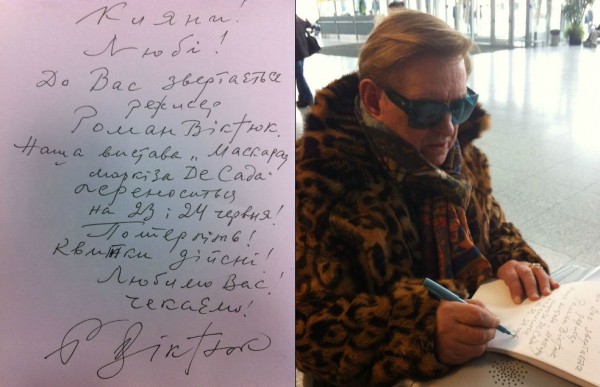 Кияни!
Любі!
До Вас звертається
режисер
Роман Віктюк.
Наша вистава „Маскарад
маркіза Де Сада"
переноситься
на 23 і 24 червня!
Потерпіть!
Квитки дійсні!
Любимо Вас!
Чекаємо!
Р Віктюк